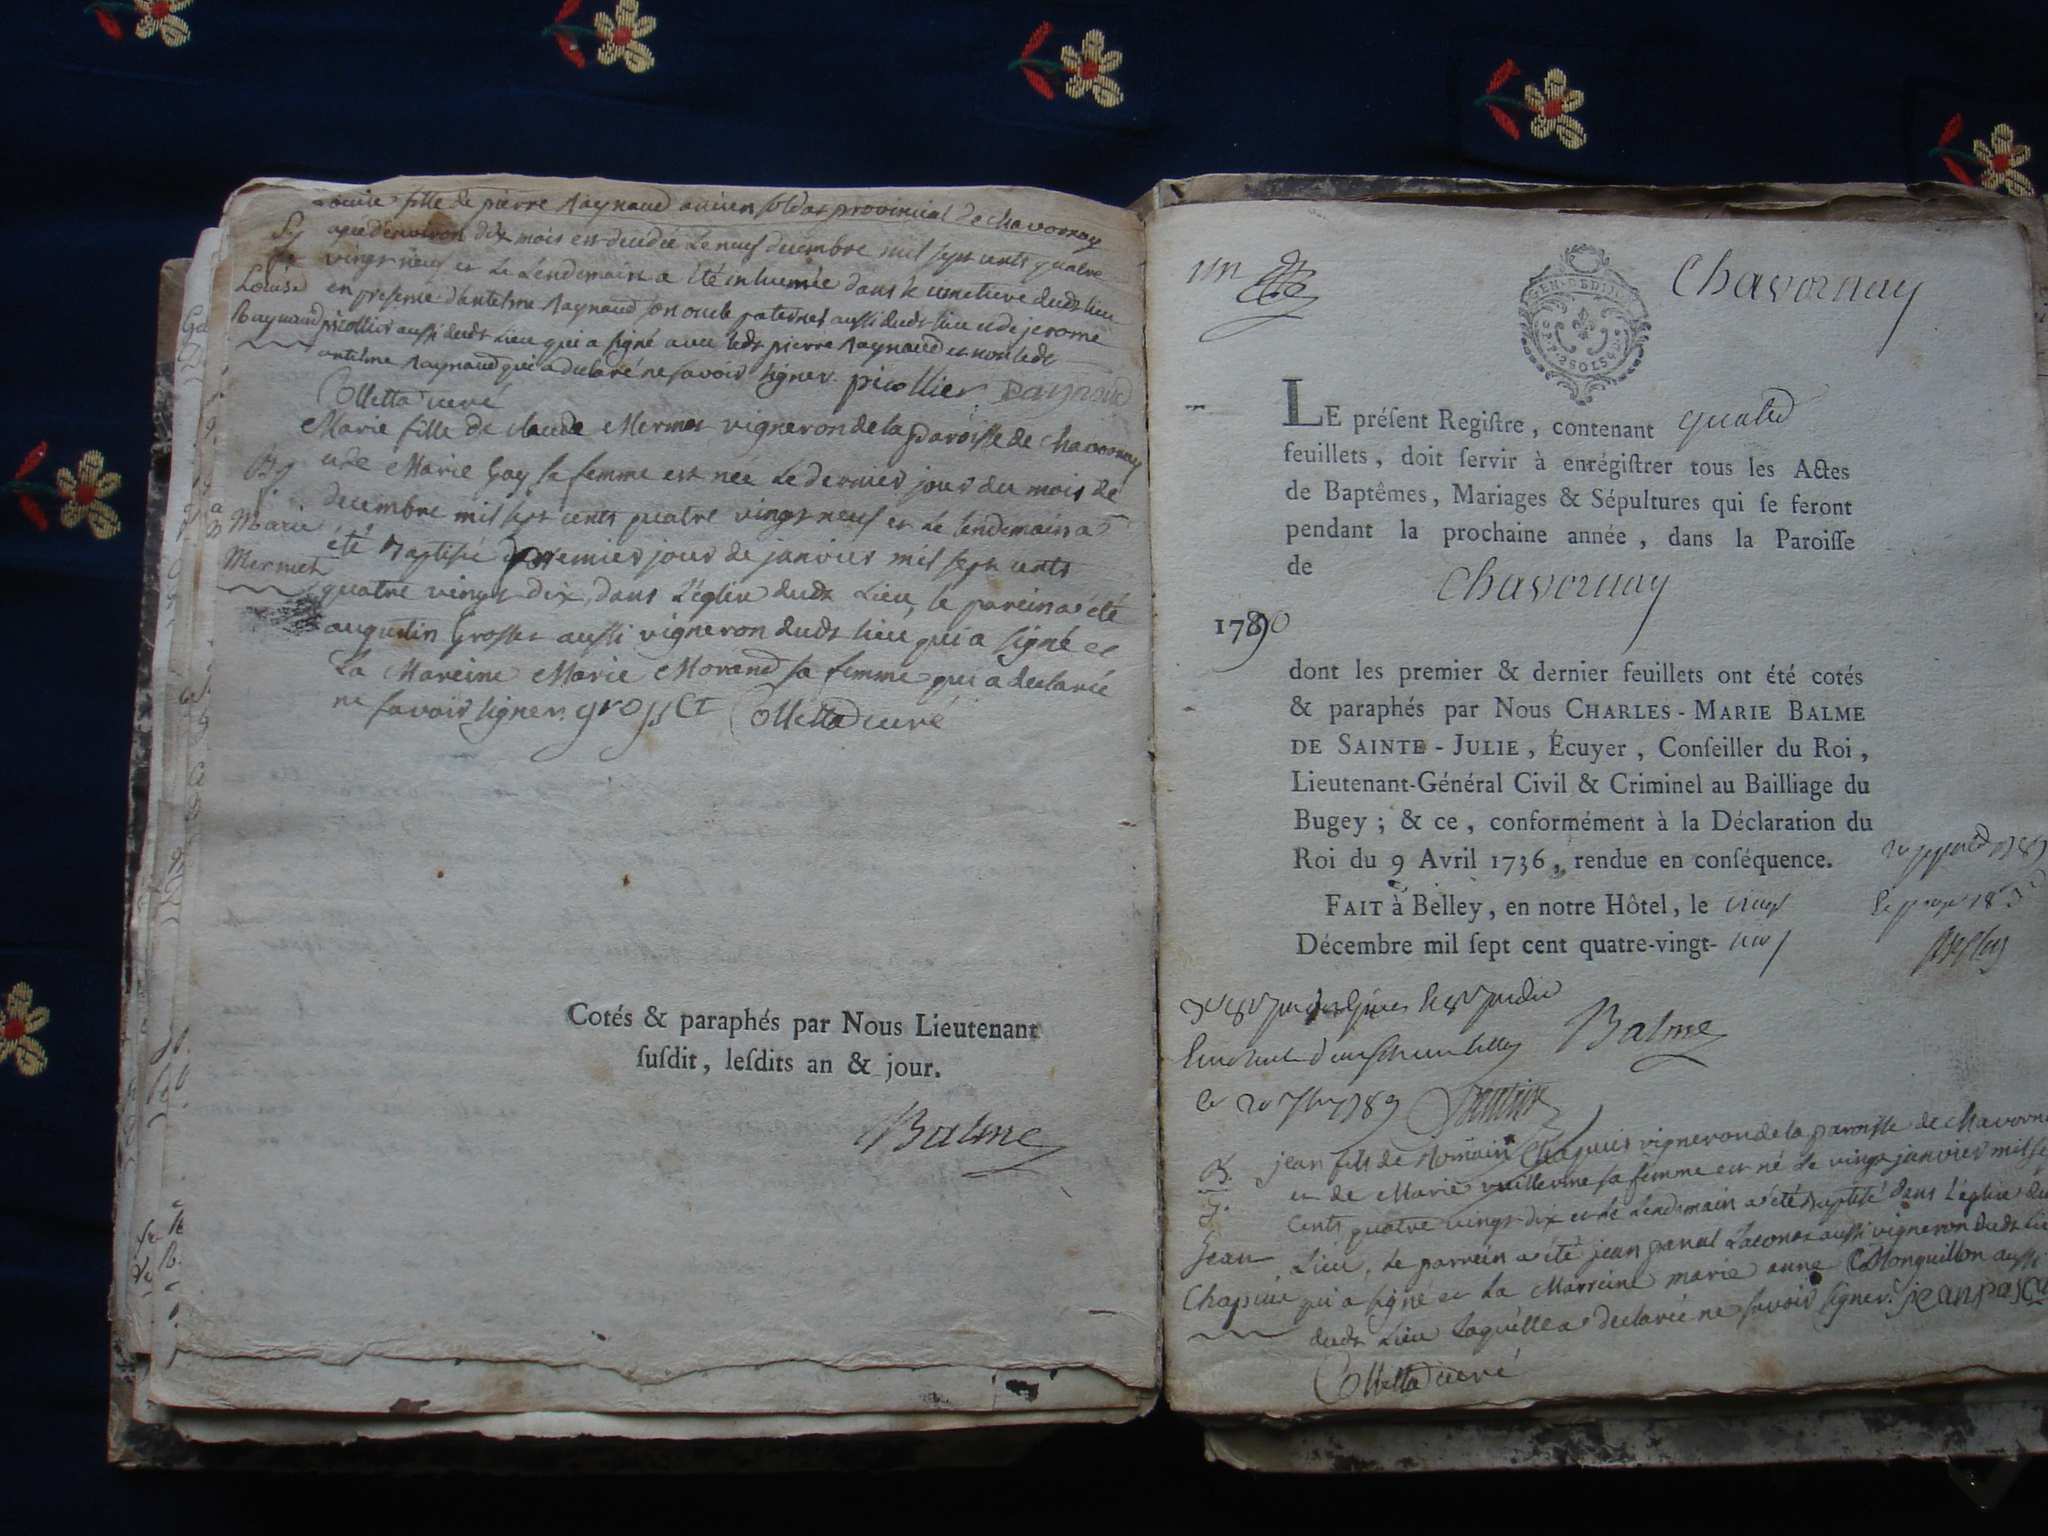 Louise fille de pierre Raynaud ancien soldat provincial de chavornay
agée d'environ dix mois est decedée Le neuf decembre mil sept cents quatre
vingt neuf et Le Lendemain a été inhumée dans le cimetiere dudt lieu
en presence d'antelme Raynaud son oncle paternel aussi dudt lieu et de jerome
picollier aussi dudt Lieu qui a signé avec ledt pierre Raynaud et non ledt
antelme Raynaud qui a declaré ne savoir signer. picollier Raynaud
Colletta curé
Sre
Louise
Raynaud
Marie fille de claude Mermet vigneron de la paroisse de chavornay
et de Marie Gay sa femme est née Le dernier jour du mois de
decembre mil sept cents quatre vingt neuf et Le lendemain a
été Baptisée premier jour de janvier mil sept cents
quatre vingt dix, dans L'église dudt Lieu, le parein a été
augustin Grosset aussi vigneron dudt lieu qui a signé et
La Mareine Marie Morand sa femme qui a declarée
ne savoir signer. grosset Colletta curé
Marie
Mermet
Cotés & paraphés par Nous Lieutenant
suſdit, leſdits an & jour.
Balme
un
Chavornay
GEN. DE DIJON
2 SOLS
LE préſent Regiſtre, contenant quatre
feuillets, doit ſervir à enrégiſtrer tous les Actes
de Baptêmes, Mariages & Sépultures qui ſe feront
pendant la prochaine année, dans la Paroiſſe
de Chavornay
1790
dont les premier & dernier feuillets ont été cotés
& paraphés par Nous CHARLES-MARIE BALME
DE SAINTE-JULIE, Écuyer, Conſeiller du Roi,
Lieutenant-Général Civil & Criminel au Bailliage du
Bugey; & ce, conformément à la Déclaration du
Roi du 9 Avril 1736, rendue en conſéquence.
FAIT à Belley, en notre Hôtel, le vingt
Décembre mil ſept cent quatre-vingt-neuf
Balme
jean fils de Romain Chapuis vigneron de la paroisse de chavorna
et de Marie vuillerme sa femme est né Le vingt janvier mil se
cents quatre vingt dix et Le Lendemain a été Baptisé dans L'église du
Lieu, Le parrein a été jean pascal Laconas aussi vigneron dudt Li
qui a signé et La Marreine marie anne Monguillon aussi
dudt Lieu Laquelle a declarée ne savoir signer. jean pasca
Colletta curé
B.
Jean
Chapuis